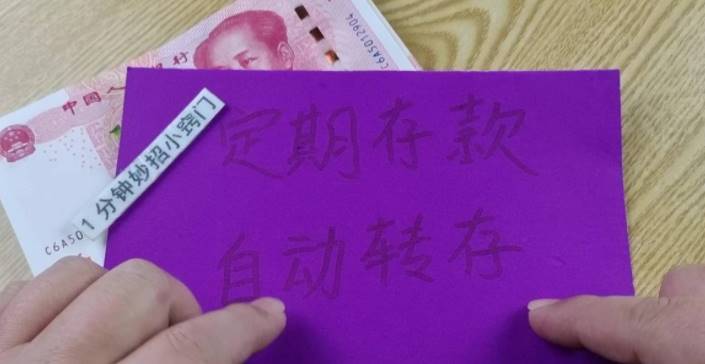 C6A5012904
中国人
行
1分钟妙招小窍门
定期存款
自动转存
C6A50